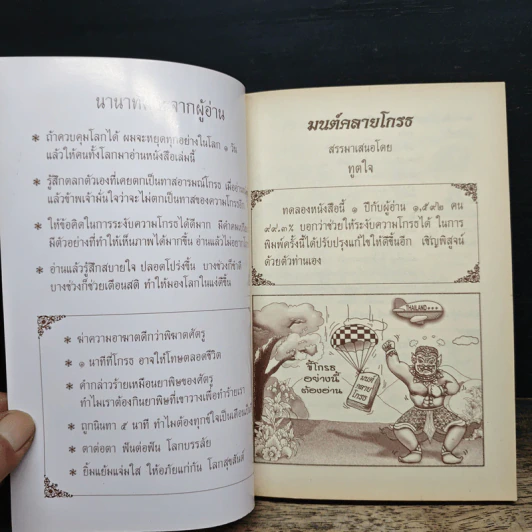 นานาทัศนะจากผู้อ่าน
* ถ้าควบคุมโลกได้ ผมจะหยุดทุกอย่างในโลก ๑ วัน
แล้วให้คนทั้งโลกมาอ่านหนังสือเล่มนี้
* รู้สึกตลกตัวเองที่เคยตกเป็นทาสอารมณ์โกรธ
แล้วข้าพเจ้ามั่นใจว่าจะไม่ตกเป็นทาสของความโกรธอีก
* ให้ข้อคิดในการระงับความโกรธได้ดีมาก
มีตัวอย่างที่ทำให้เห็นภาพได้มากขึ้น อ่านแล้วไม่
* อ่านแล้วรู้สึกสบายใจ ปลอดโปร่งขึ้น บางช่วงก็ขำดี
บางช่วงก็ช่วยเตือนสติ ทำให้มองโลกในแง่ดีขึ้น
* ฆ่าความอาฆาตดีกว่าพิฆาตศัตรู
* ๑ นาทีที่โกรธ อาจให้โทษตลอดชีวิต
* คำกล่าวร้ายเหมือนยาพิษของศัตรู
ทำไมเราต้องกินยาพิษที่เขาวางเพื่อทำร้ายเรา
* ถูกนินทา ๕ นาที ทำไมต้องทุกข์ใจเป็นเดือนเป็น
* ตาต่อตา ฟันต่อฟัน โลกบรรลัย
* ยิ้มแย้มแจ่มใส ให้อภัยแก่กัน โลกสุขสันต์
มนต์คลายโกรธ
สรรมาเสนอโดย
ทูตใจ
ทดลองหนังสือนี้ ๑ ปีกับผู้อ่าน ๑,๕๙๒ คน
๙๙.๓% บอกว่าช่วยให้ระงับความโกรธได้ ในการ
พิมพ์ครั้งนี้ได้ปรับปรุงแก้ไขให้ดีขึ้นอีก เชิญพิสูจน์
ด้วยตัวท่านเอง
THAILAND
ขี้โกรธ
อย่างนี้
ต้องอ่าน
มนต์
คลาย
โกรธ